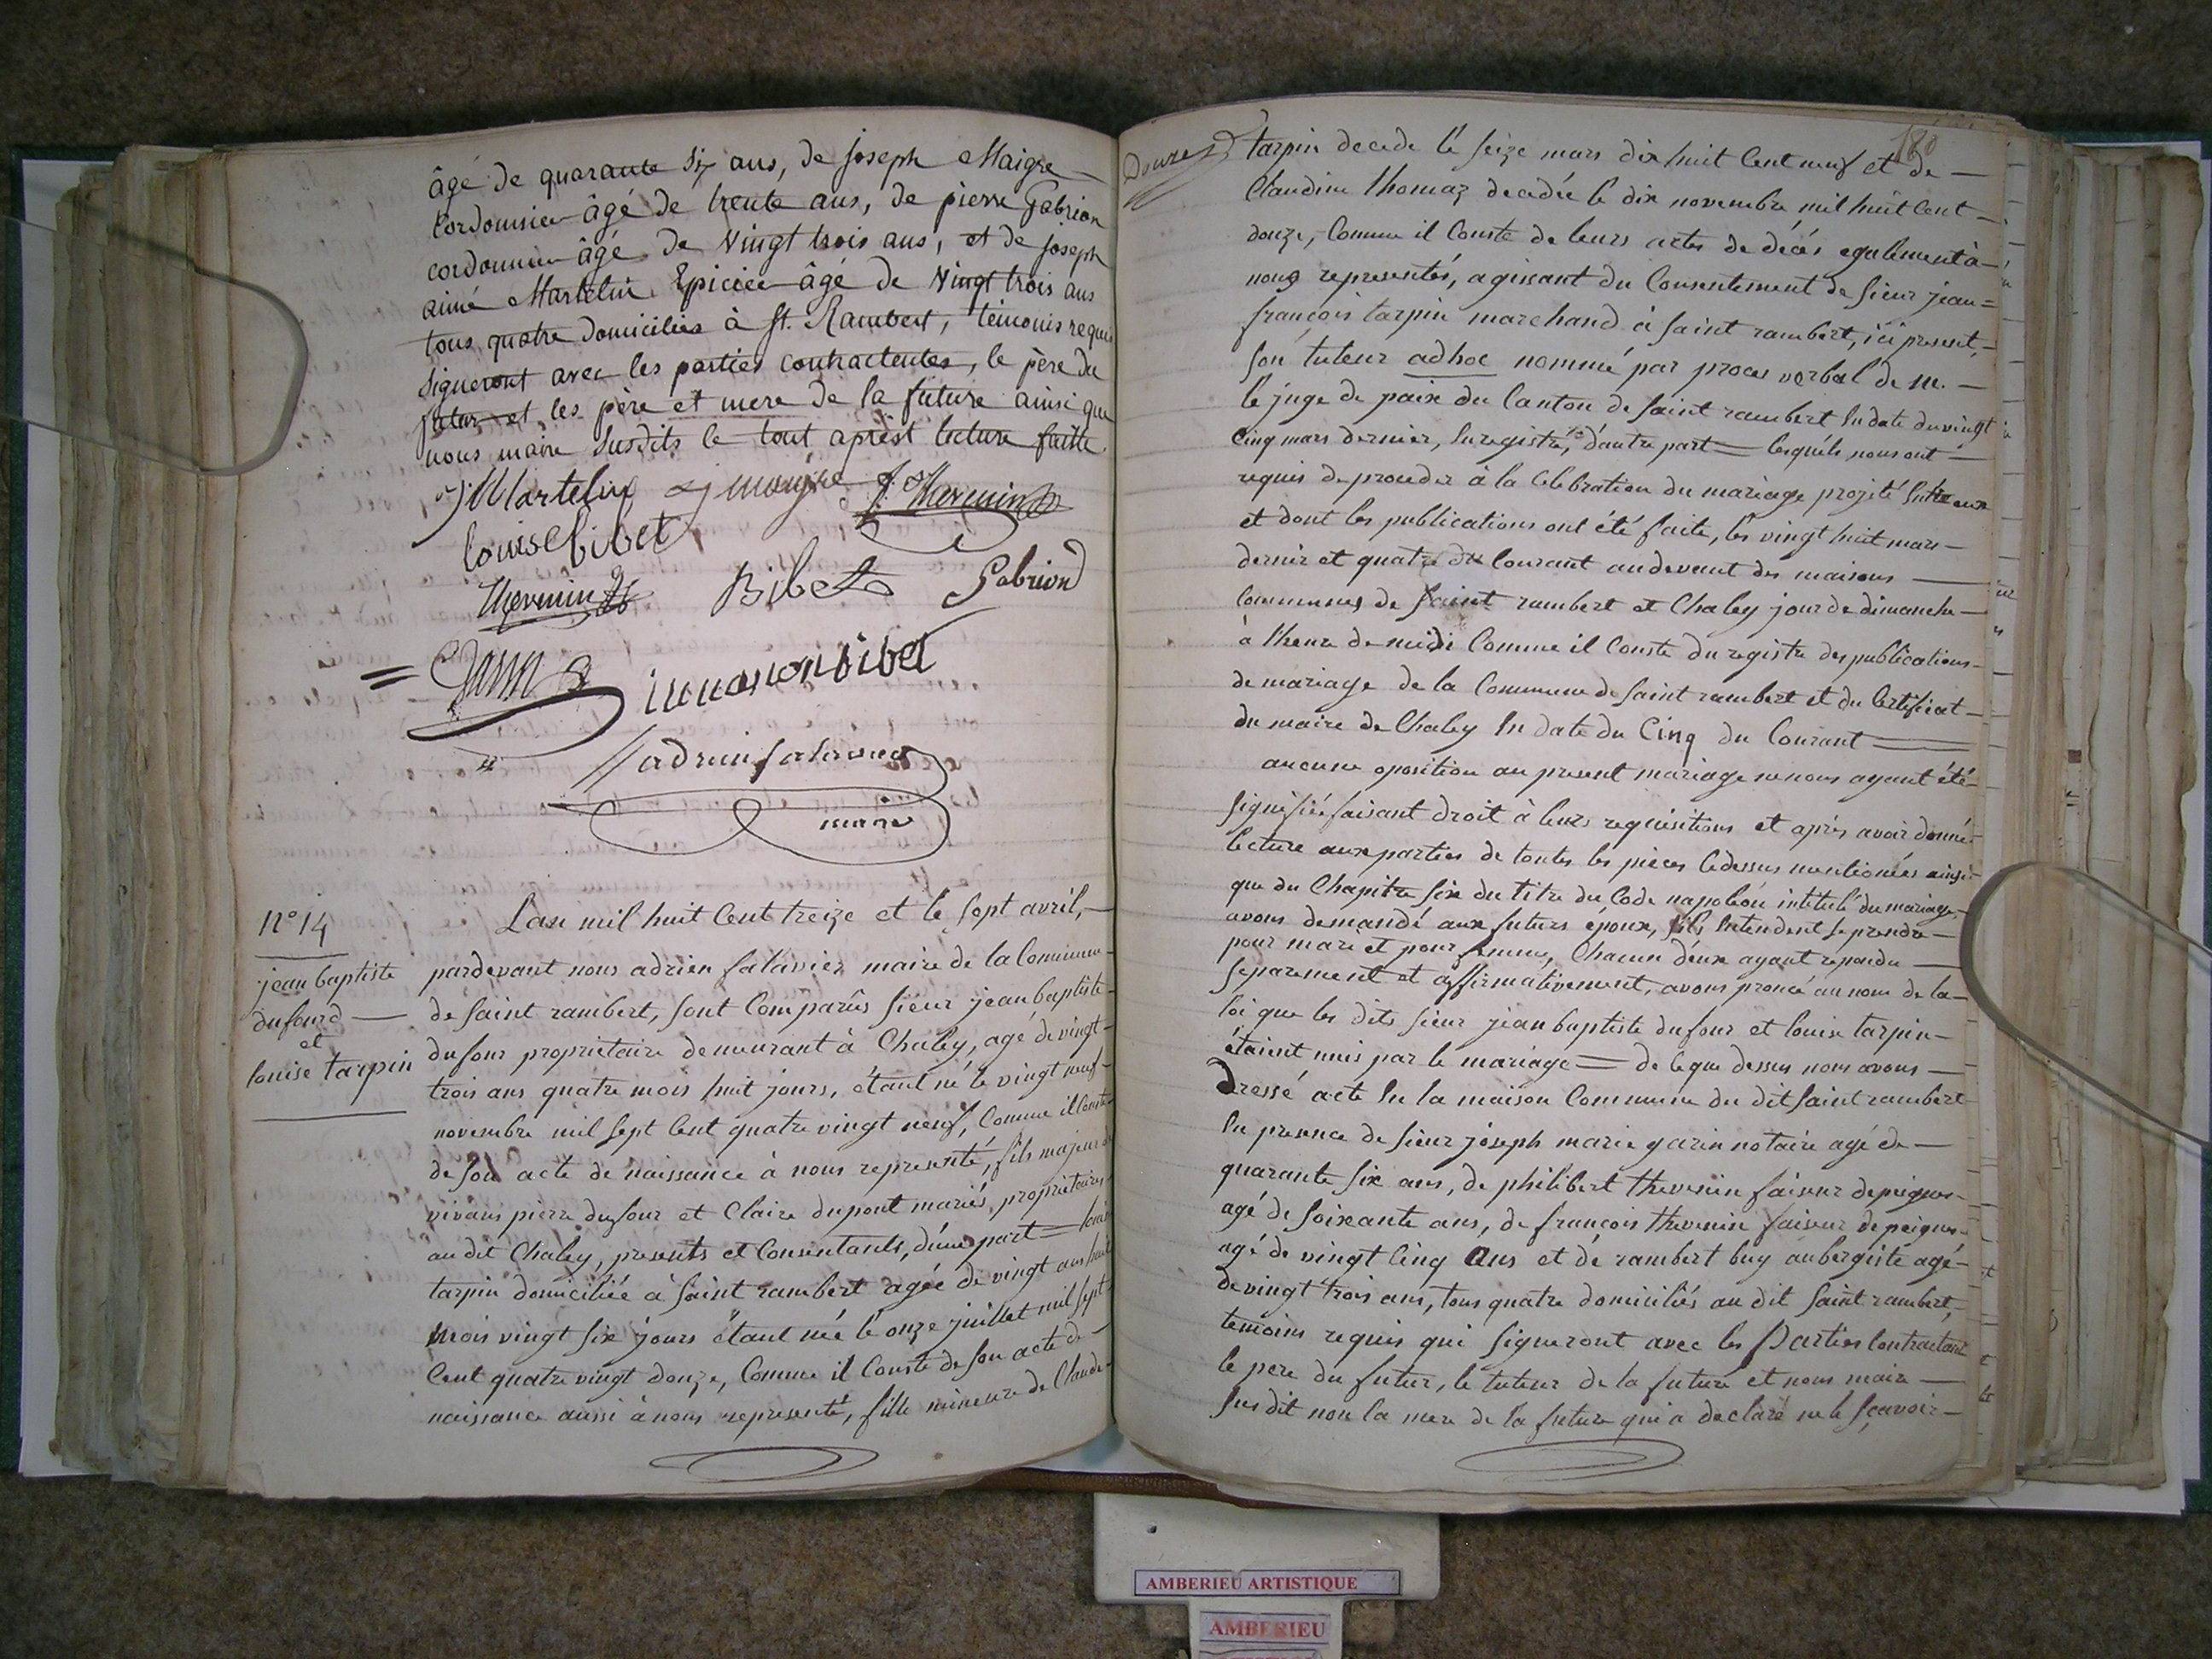 âgé de quarante six ans, de joseph Maigre
Cordonnier âgé de trente ans, de pierre Gabrion
cordonnier âgé de vingt trois ans, et de joseph
aimé Martelin Epicier âgé de vingt trois ans
tous quatre domiciliés à St. Rambert, témouis requis
signeront avec les parties contractentes, le père du
futur et les père et mere de la future ainsi que
nous maire susdits le tout aprèst lecture faitte
j Martelin j maigre J. Thevenin
louise bibet
Thevenin Bibet Gabriond
bibet
adrien salavier
maire
N° 14
jean baptiste
dufourd
et
louise tarpin
Lan mil huit Cent treize et le sept avril,
pardevant nous adrien salavier maire de la Commune
de saint rambert, sont Comparûs sieur jean baptiste
dufour proprietaire demeurant à Chaley, agé de vingt
trois ans quatre mois huit jours, étant né le vingt neuf
novembre mil sept Cent quatre vingt neuf, Comme il Conste
de son acte de naissance à nous representé, fils majeur de
vivans pierre dufour et Claire dupont mariés, proprietaires
au dit Chaley, presents et Consentants, d'une part = louise
tarpin domiciliée à saint rambert agée de vingt ans huit
mois vingt six jours étant née le onze juillet mil sept
Cent quatre vingt douze, Comme il Conste de son acte de
naissance aussi à nous representé, fille mineure de Claude
180
Douze
tarpin decede le seize mars dix huit Cent neuf et de
Claudine thomaz decedée le dix novembre mil huit Cent
douze, Comme il Conste de leurs actes de décés egalement à
nous representés, agissant du Consentement de sieur jean =
françois tarpin marchand à saint rambert, ici present,
son tuteur adhoc nommé par proces verbal de m.
le juge de paix du Canton de saint rambert En date du vingt
Cinq mars dernier, Enregistré, d'autre part = lesquéls nous ont
requis de proceder à la Celebration du mariage projeté Entre eux
et dont les publications ont été faite, les vingt huit mars
dernier et quatre du Courant audevant des maisons
Communes de saint rambert et Chaley jour de dimanche
à l'heure de midi Comme il Conste du registre des publications
de mariage de la Commune de saint rambert et du Certificat
du maire de Chaley En date du Cinq du Courant
aucune oposition au present mariage ne nous ayant été
signifiée faisant droit à leurs requisitions et après avoir donné
lecture aux parties de toutes les pieces Cedessus mentionées ainsi
que du Chapitre six du titre du Code napoléon intitulé du mariage,
avons demandé aux futurs époux, s'ils Entendent se prendre
pour mari et pour femme, Chacun d'eux ayant repondu
separement et affirmativement, avons proncé au nom de la
loi que les dits sieur jean baptiste dufour et louise tarpin
étaient unis par le mariage = de ceque dessus nous avons
Dressé acte En la maison Commune du dit saint rambert
En presence de sieur joseph marie garin notaire agé de
quarante six ans, de philibert thevenin faiseur de peignes
agé de soixante ans, de françois thevenin faiseur de peignes
agé de vingt Cinq ans et de rambert buy aubergiste agé
de vingt trois ans, tous quatre domiciliés au dit saint rambert,
temoins requis qui signeront avec les Parties Contractant
le pere du futur, le tuteur de la future et nous maire
sus dit non la mere de la future qui a declaré ne le sçavoir
AMBERIEU ARTISTIQUE
AMBERIEU